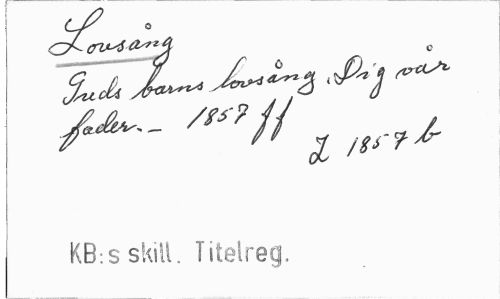 Lovsång
Guds barns lovsång. Dig vår
fader. – 1857 ff
Z 1857 b
KB:s skill. Titelreg.